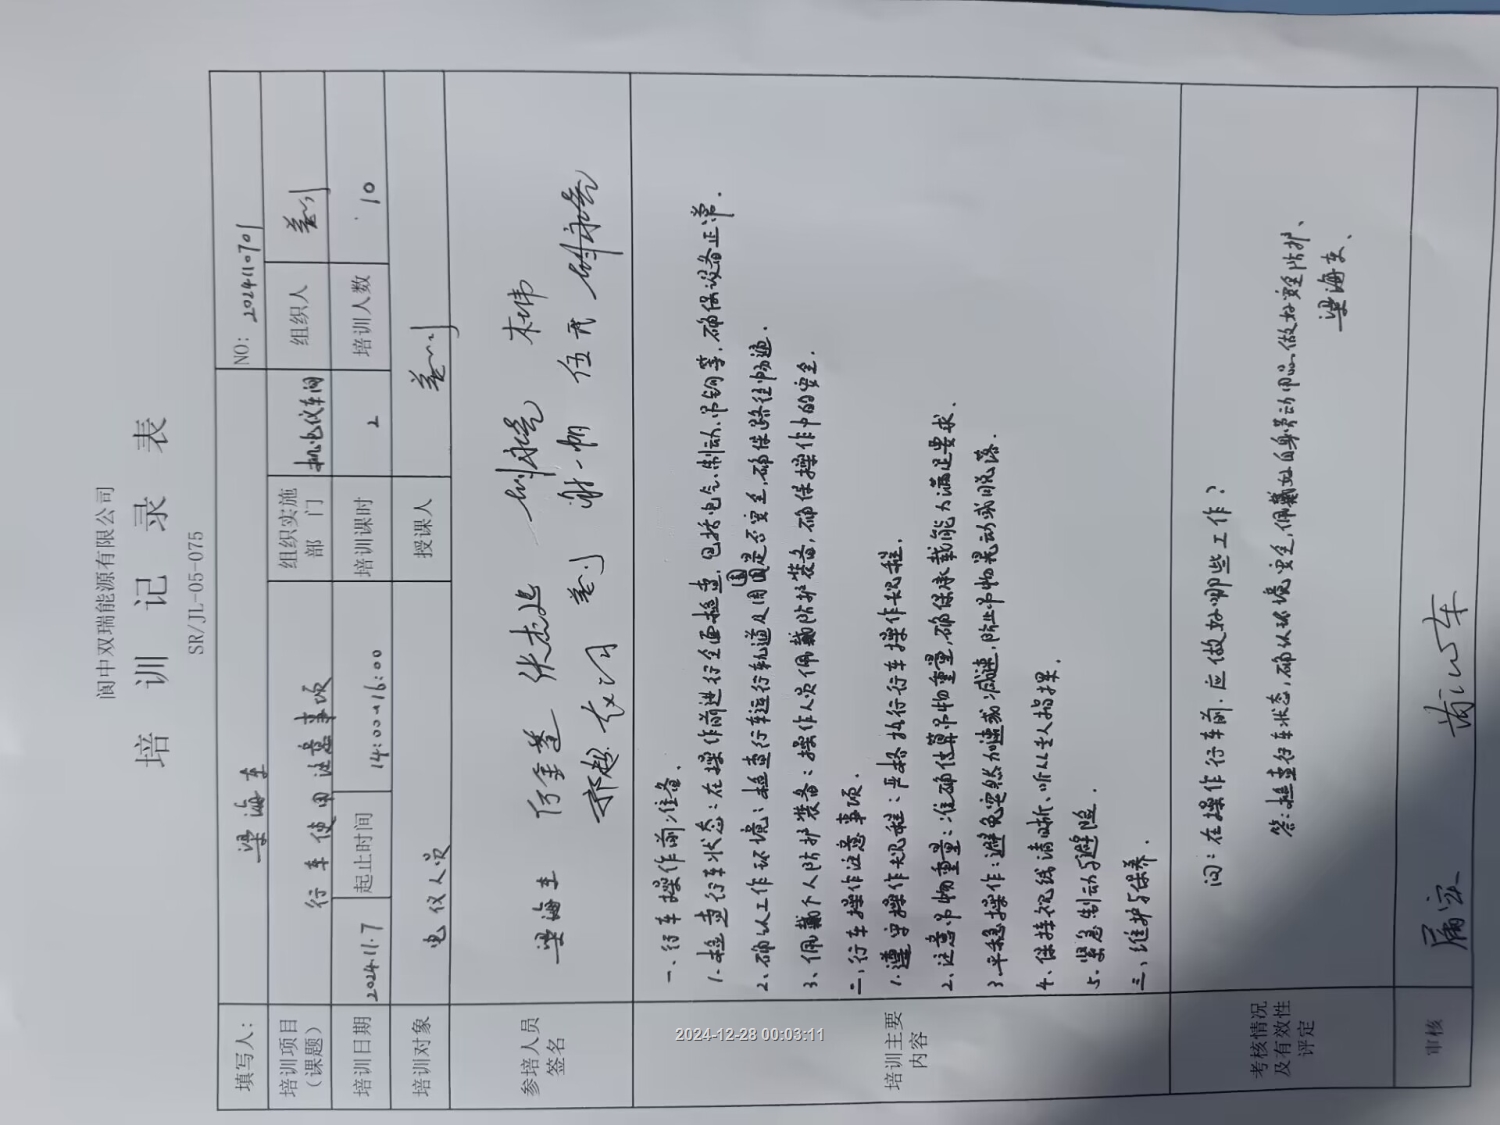 阆中双瑞能源有限公司
培训记录表
SR/JL-05-075
填写人： 梁海東 NO: 2024110701
培训项目（课题） 行车使用注意事项 组织实施部门 机电仪车间 组织人
培训日期 2024.11.7 起止时间 14:00-16:00 培训课时 2 培训人数 10
培训对象 电仪人员 授课人
参培人员签名 梁海東
培训主要内容
一、行车操作前准备.
1.检查行车状态:在操作前进行全面检查,包括电气、制动、吊钩等,确保设备正常.
2、确认工作环境:检查行车运行轨道及周围是否安全,确保路径畅通.
3、佩戴个人防护装备:操作人员佩戴防护装备,确保操作中的安全.
二,行车操作注意事项.
1.遵守操作规程:严格执行行车操作规程.
2、注意吊物重量:准确估算吊物重量,确保承载能力满足要求.
3.平稳操作:避免突然加速或减速,防止吊物晃动或脱落.
4、保持视线清晰、听从专人指挥.
5.紧急制动与避险.
三、维护与保养.
考核情况及有效性评定
问:在操作行车前.应做好哪些工作?
答:检查行车状态,确认环境安全,佩戴好自身劳动用品.做好安全防护、
梁海東、
审核
2024-12-28 00:03:11